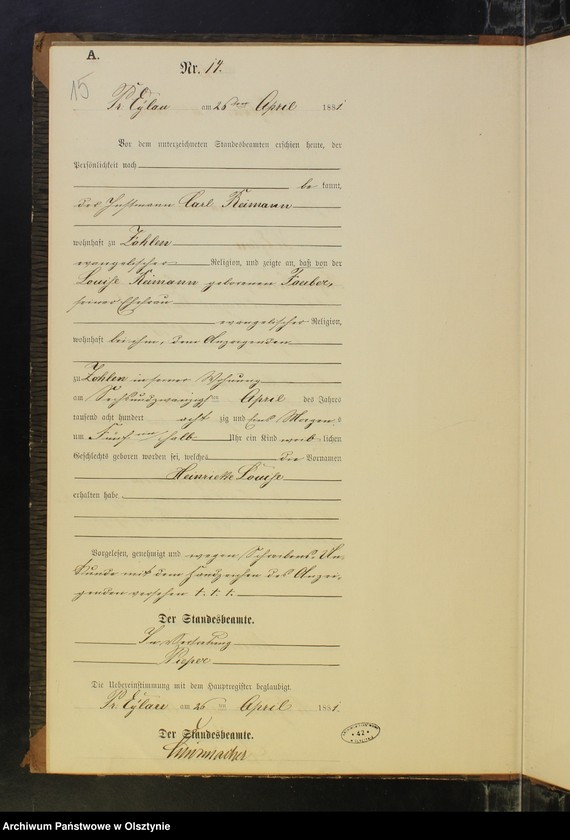 A.
Nr. 14.
15
Pr. Eylau am 26ten April 1881
Vor dem unterzeichneten Standesbeamten erschien heute, der
Persönlichkeit nach
be kannt,
der Instmann Carl Reimann
wohnhaft zu Zohlen
evangelischer Religion, und zeigte an, daß von der
Louise Reimann geborenen Tauber,
seiner Ehefrau
evangelischer Religion,
wohnhaft bei ihm, dem Anzeigenden
zu Zohlen in seiner Wohnung
am Sechsundzwanzigsten April des Jahres
tausend acht hundert acht zig und Eins Morgens
um Fünf ein halb Uhr ein Kind weib lichen
Geschlechts geboren worden sei, welches die Vornamen
Heinriette Louise
erhalten habe
Vorgelesen, genehmigt und wegen Schreibens-Un-
kunde mit dem Handzeichen des Anzei-
genden versehen †. †. †.
Der Standesbeamte.
In Vertretung
Pieper
Die Uebereinstimmung mit dem Hauptregister beglaubigt
Pr. Eylau am 26ten April 1881.
Der Standesbeamte.
42
Archiwum Państwowe w Olsztynie